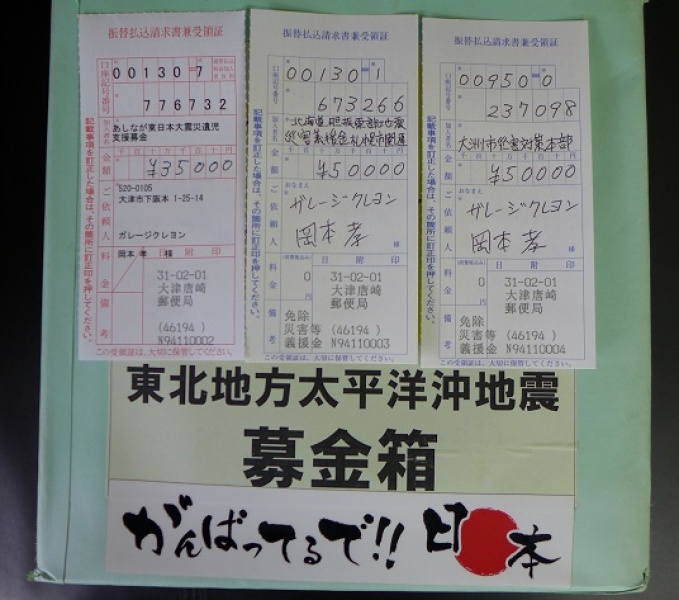 振替払込請求書兼受領証
口座記号番号
00130 7
776732
加入者名
あしなが東日本大震災遺児
支援募金
金額
千 百 十 万 千 百 十 円
¥35000
ご依頼人
520-0105
大津市下阪本 1-25-14
ガレージクレヨン
岡本 孝 様
料金
日附印
31-02-01
大津唐崎
郵便局
(46194 )
N94110002
備考
記載事項を訂正した場合は、その箇所に訂正印を押してください。
この受領証は、大切に保管してください。
振替払込請求書兼受領証
口座記号番号
00130 1
673266
加入者名
北海道胆振東部地震
災害義援金札幌市関係
金額
千 百 十 万 千 百 十 円
¥50000
ご依頼人
おなまえ
ガレージクレヨン
岡本孝 様
料金
(消費税込み)
0 円
日附印
31-02-01
大津唐崎
郵便局
備考
免除
災害等 (46194 )
義援金 N94110003
記載事項を訂正した場合は、その箇所に訂正印を押してください。
この受領証は、大切に保管してください。
振替払込請求書兼受領証
口座記号番号
00950 0
237098
加入者名
大洲市災害対策本部
金額
千 百 十 万 千 百 十 円
¥50000
ご依頼人
おなまえ
ガレージクレヨン
岡本孝 様
料金
(消費税込み)
0 円
日附印
31-02-01
大津唐崎
郵便局
備考
免除
災害等 (46194 )
義援金 N94110004
記載事項を訂正した場合は、その箇所に訂正印を押してください。
この受領証は、大切に保管してください。
東北地方太平洋沖地震
募金箱
がんばってるで!! 日本